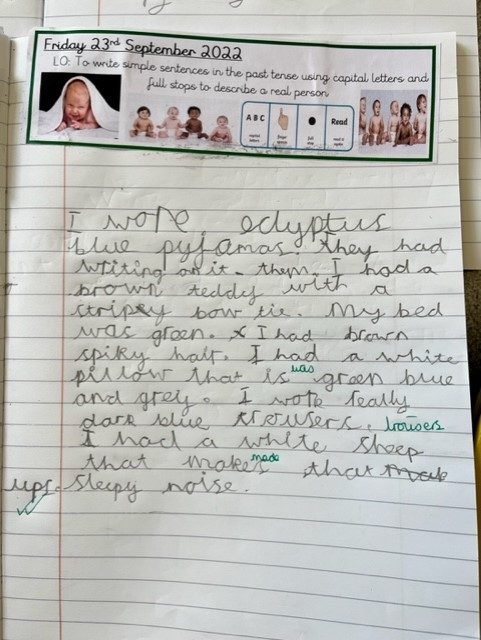 Friday 23rd September 2022
LO: To write simple sentences in the past tense using capital letters and
full stops to describe a real person
A B C
capital letters
finger space
full stop
Read
read it again
I wore eclyptus
blue pyjamas. they had
writing on it - them. I had a
brown teddy with a
stripey bow tie. My bed
was green. x I had brown
spiky hair. I had a white
pillow that is was green blue
and grey. I wore really
dark blue trousers. trousers
I had a white sheep
that makes made that mak
sleepy noise.